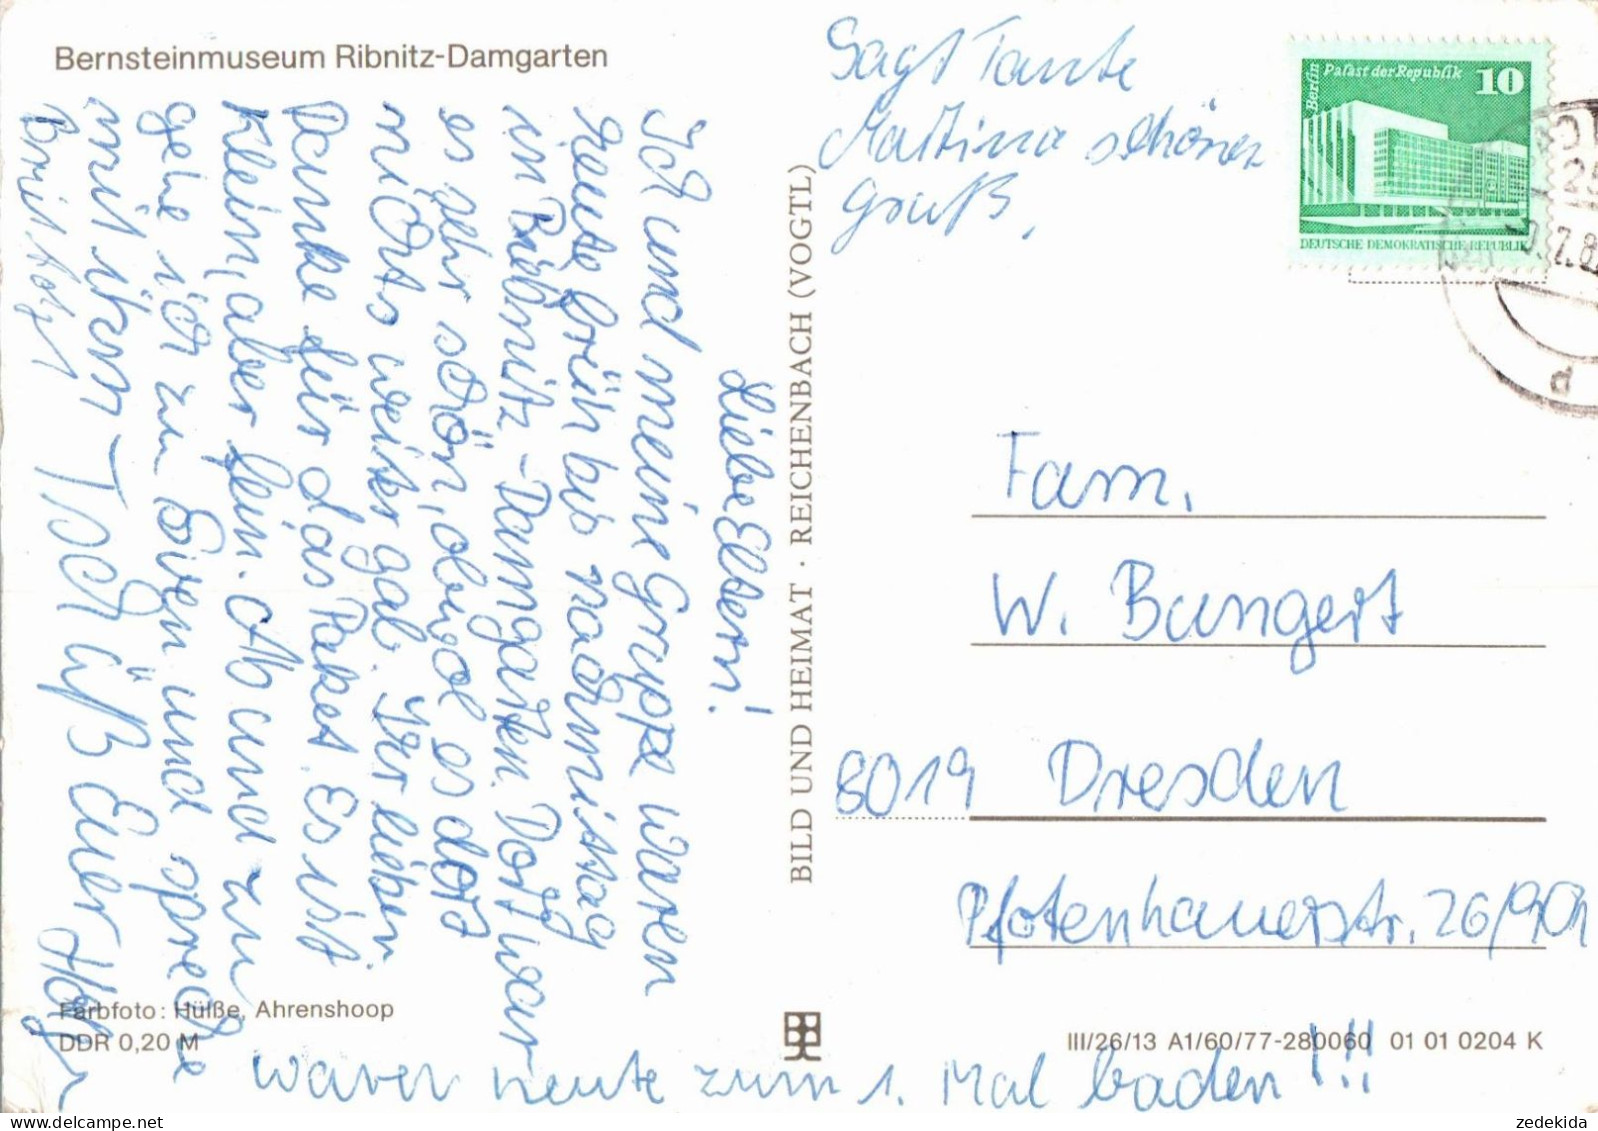 Bernsteinmuseum Ribnitz-Damgarten
Liebe Eltern!
Ich und meine Gruppe waren
heute früh bis nachmittag
in Ribnitz-Damgarten. Dort war
es sehr schön, obwol es dort
nichts weiter gab. Ihr lieben
Danke für das Paket. Es ist
Klein, aber fein. Ab und zu
gehe ich zu Sven und spreche
mit ihm
Tschüß Euer Holger
Sagt Tante
Martina schönen
Gruß.
waren heute zum 1. Mal baden!!!
BILD UND HEIMAT · REICHENBACH (VOGTL)
Berlin
Palast der Republik
10
DEUTSCHE DEMOKRATISCHE REPUBLIK
d
Fam.
W. Bangert
8019 Dresden
Pfotenhauerstr. 26/901
Farbfoto: Hülße, Ahrenshoop
DDR 0,20 M
III/26/13 A1/60/77-280060 01 01 0204 K
zedekida